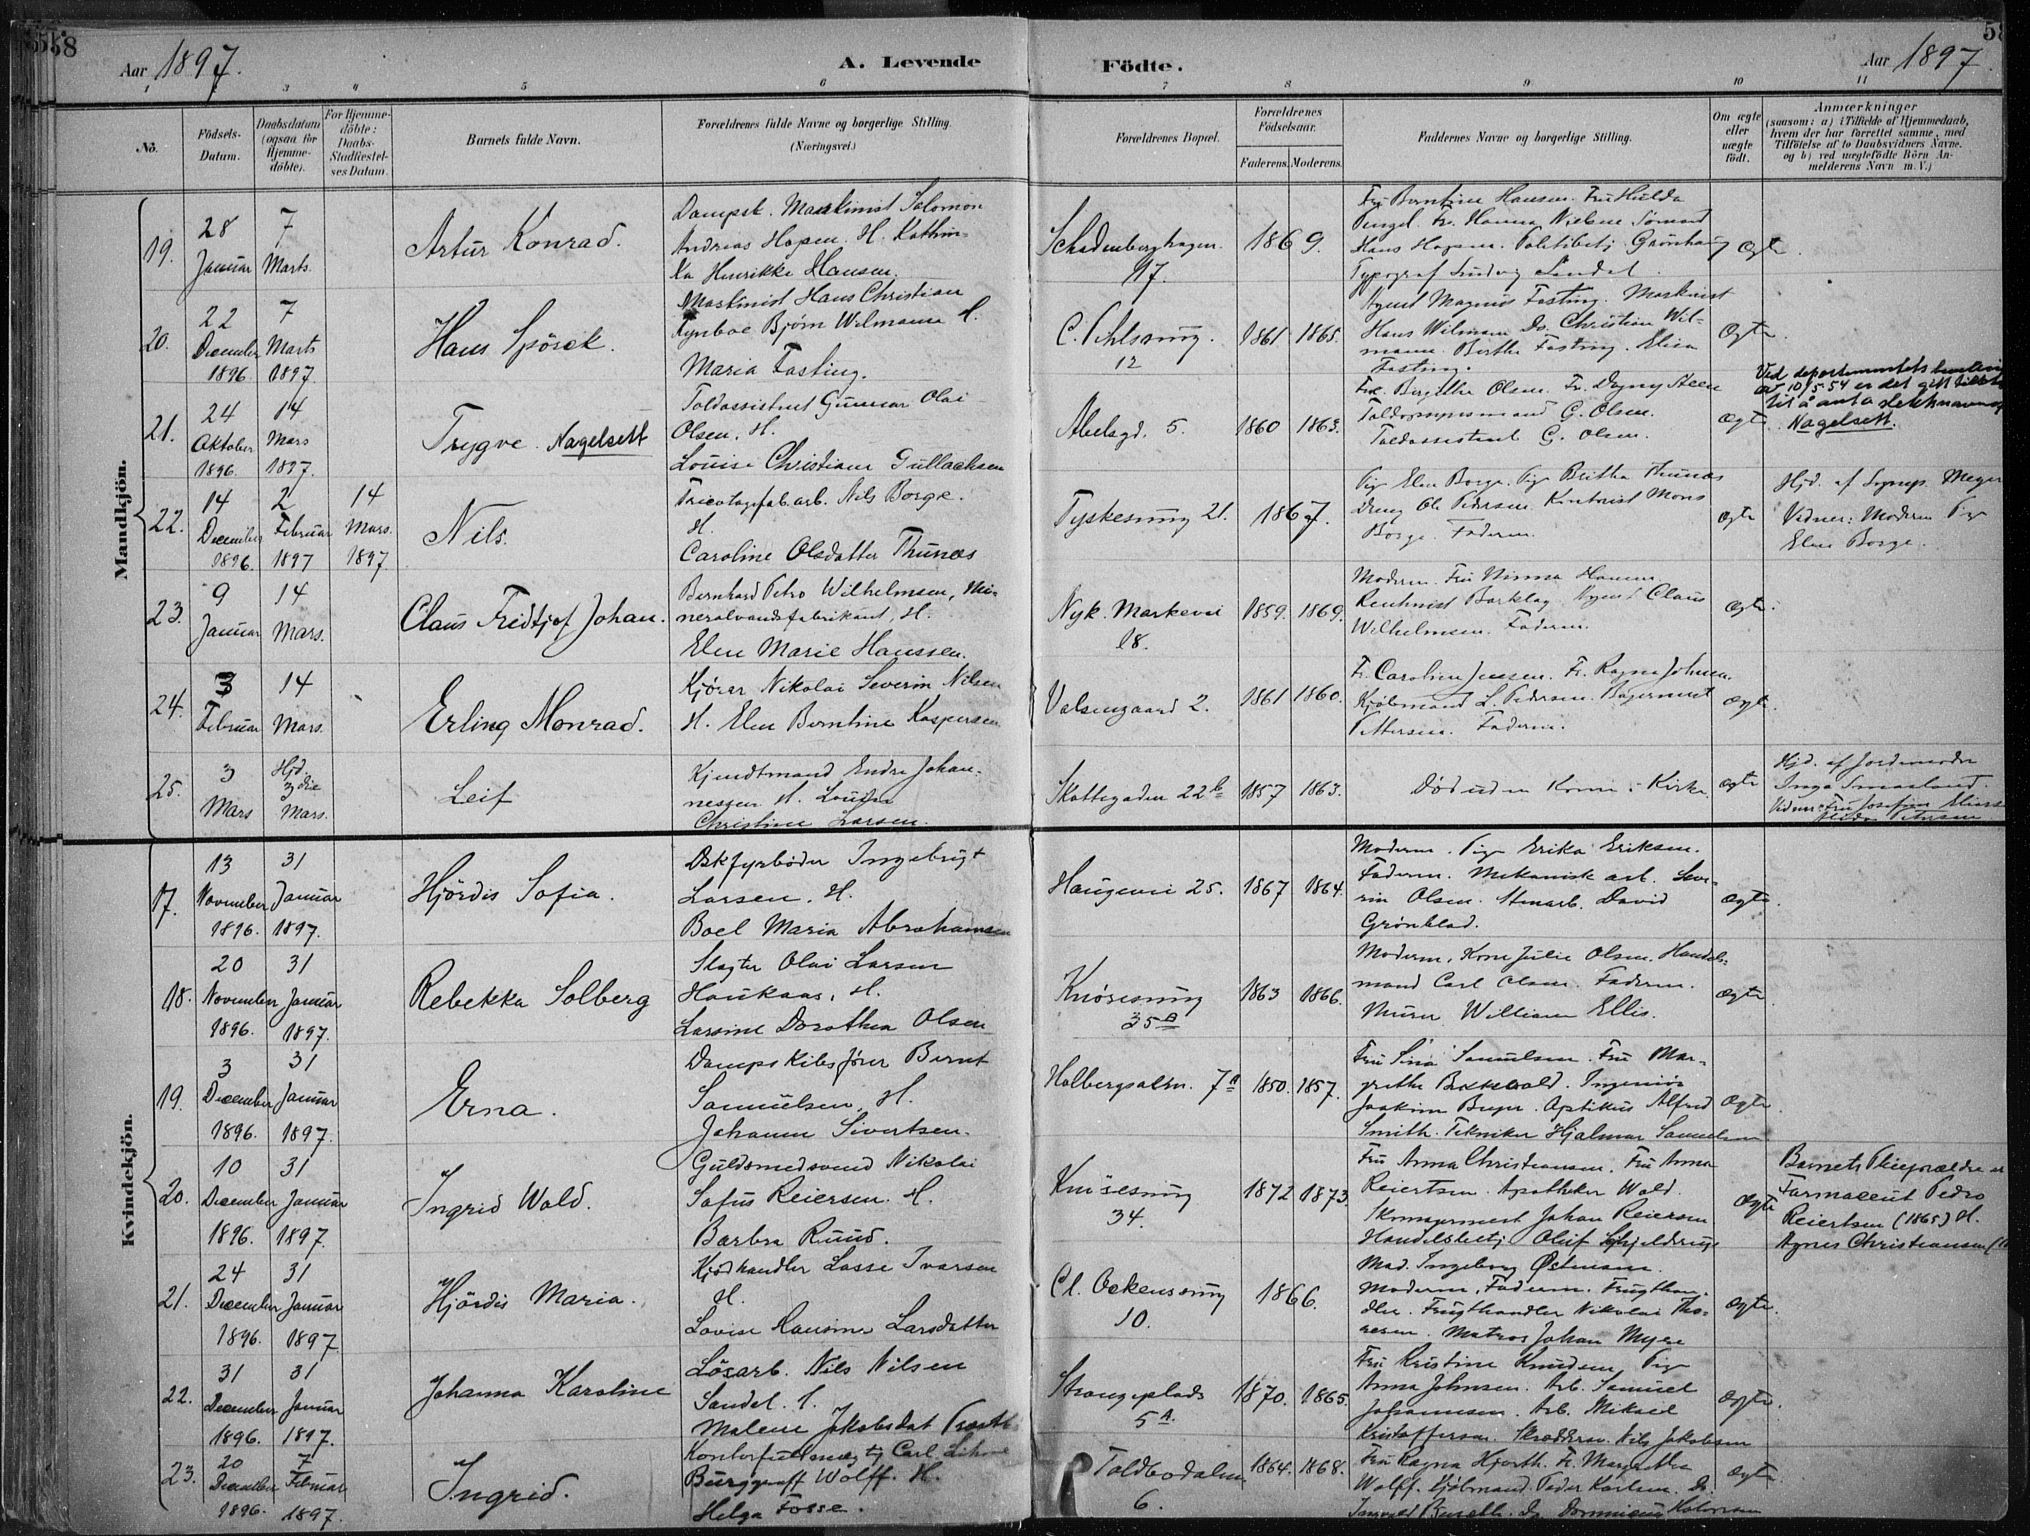 58
Aar 1897.
A. Levende
Födte.
Aar 1897
1 3 4 5 6 7 8 9 10 11
No.
Födsels-Datum.
Daabsdatum (ogsaa for Hjemme-döbte).
For Hjemme-döbte: Daabs-Stadfæstel-ses Datum.
Barnets fulde Navn.
Forældrenes fulde Navne og borgerlige Stilling.
(Næringsvei.)
Forældrenes Bopæl.
Forældrenes Födselsaar.
Faderens. Moderens.
Faddernes Navne og borgerlige Stilling.
Om ægte eller uægte födt.
Anmærkninger
(saasom: a) i Tilfælde af Hjemmedaab,
hvem der har forrettet samme, med
Tilföielse af to Daabsvidners Navne,
og b) ved uægtefödte Börn An-
melderens Navn m. V.)
Mandkjön.
19. 28 Januar 7 Marts. Artur Konrad.
Dampsk. Maskinist Salomon
Andreas Hopen. H. Kathin-
ka Henrikke Hansen.
17. 1869.
Fru Berntine Hansen. Fru Hulda
Hans Hopen. Politibetj. Grønhaug
Typograf Ludvig Sandal.
ægte.
20. 22 December 1896. 7 Marts 1897. Hans Spörck.
Maskinist Hans Christian
Kynboe Bjørn Wilmann H.
Maria Fasting.
C. Pihlssmug. 12 1861 1865.
Agent Magnus Fasting. Maskinist
Hans Wilmann Do. Christian Wil-
mann. Berthe Fasting. Elisa
Fasting.
ægte
21. 24 Oktober 1896. 14 Mars 1897. Trygve. Nagelsett
Toldassistent Gunnar Olai
Olsen. H.
Louise Christiane Gullachsen
Abelsgd. 5. 1860 1863.
Frk. Bergithe Olsen. Fr. Dagny
G. Olsen.
Toldassistent G. Olsen.
ægte
Ved departementets
av 10/5.54 er det gitt
til å anta slektsnavnet
Nagelsett.
22. 14 December 1896. 2 Februar 1897 14 Mars. 1897. Nils.
Tricotagefab.arb. Nils Borge.
H.
Caroline Olsdatter Thunes
Tyskesmug 21. 1867.
Pige Elen Borge. Pige Britha Thunes
Dreng Ole Pedersen Mons
Borge. Faderen.
ægte
Hjd. af Sognep. Meyer
Vidner: Moderen Pige
Elen Borge.
23. 9 Januar 14 Mars. Claus Fridtjof Johan.
Bernhard Petro Wilhelmsen, Mi-
neralvandsfabrikant, H.
Elen Marie Hanssen.
Nyk. Markevei 18. 1859. 1869.
Moderen. Fru Ninna Hansen
Barklay. Agent Claus
Wilhelmsen. Faderen.
ægte.
24. 3 Februar 14 Mars. Erling Monrad.
Kjører Nikolai Severin Nilsen
H. Elen Berntine Kaspersen
1861 1860.
Fr. Caroline Jensen. Fr. Ragna Johnsen.
Kjøbmand L. Pedersen. Bagermest
Pettersen. Faderen.
ægte.
25. 3 Mars Hjd. 3die Mars. Leif
Kjendtmand Endre Johan-
nessen H. Louise
Christine Larsen.
Skottegaden 22 b 1857 1863.
Död uden Kom i Kirke.
ægte
Hjd. af Jordemodr
Inga Smaaland.
Vidner: Fru Josefine
Petersen
Kvindekjön.
17. 13 November 1896. 31 Januar 1897. Hjördis Sofia.
Dskfyrböder Ingebrigt
Larsen. H.
Boel Maria Abrahamsen
Haugevei 25. 1867 1864.
Moderen. Pige Erika Eriksen.
Faderen. Mekanisk arb. Seve-
rin Olsen. Stenarb. David
Grønblad.
ægte.
18. 20 November 1896. 31 Januar 1897. Rebekka Solberg
Slagter Olai Larsen
Haukaas. H.
Larsine Dorothea Olsen
Knøsesmug 35 B 1863 1866.
Moderen. Kone Julie Olsen. Handels-
mand Carl Olsen. Faderen.
Murer William Ellis.
ægte.
19. 3 December 1896. 31 Januar 1897. Erna.
Dampskibsfører Bernt
Samuelsen. H.
Johanne Sivertsen.
Holbergsalm. 7 A 1850. 1857.
Fru Sina Samuelsen. Fru Mar-
grethe Ingeniör
Joakim Beyer. Optikus Alfred
Smith. Tekniker Hjalmar Samuelsen
ægte.
20. 10 December 1896. 31 Januar 1897. Ingrid Wold.
Guldsmedsvend Nikolai
Sofus Reiersen. H.
Barbra Ruud.
Knösesmug 34. 1872 1873.
Fru Anna Christiansen. Fru Anna
Reiertsen. Apotheker Wold.
Skomagermest Johan Reiersen
Handelsbetj. Oluf
ægte
Barnets Pleieforældre er
Farmaceut Pedro
Reiertsen (1865) H.
Agnes Christiansen
21. 24 December 1896. 31 Januar 1897. Hjördis Maria.
Kjödhandler Lasse Ivarsen
H.
Lovise Hansine Larsdatter
Cl. Ockenssmug 10. 1866.
Mad. Ingeborg Østensen.
Moderen. Faderen. Frugthan-
dler. Frugthandler Nikolai Tho-
resen. Matros Johan Myre
ægte.
22. 31 December 1896. 31 Januar 1897. Johanna Karoline
Lösarb. Nils Nilsen
Sandal.
Malene Jakobsdat
Strangeplads 5 A. 1870. 1865.
Fru Kristine Knudsen. Pige
Anna Johnsen. Arb. Samuel
Johannesen. Arb. Mikael
Kristoffersen. Skrædders. Nils Jakobsen
ægte.
23. 20 December 1896. 7 Februar 1897. Ingrid.
Kontorfuldmægtig Carl
Burggraff Wolff. H.
Helga Fosse.
Toldbodalm 6. 1864. 1868.
Fru Ragna Hjorth. Fr. Margrethe
Wolff. Kjøbmand Peder Karlsen. Do.
ægte.